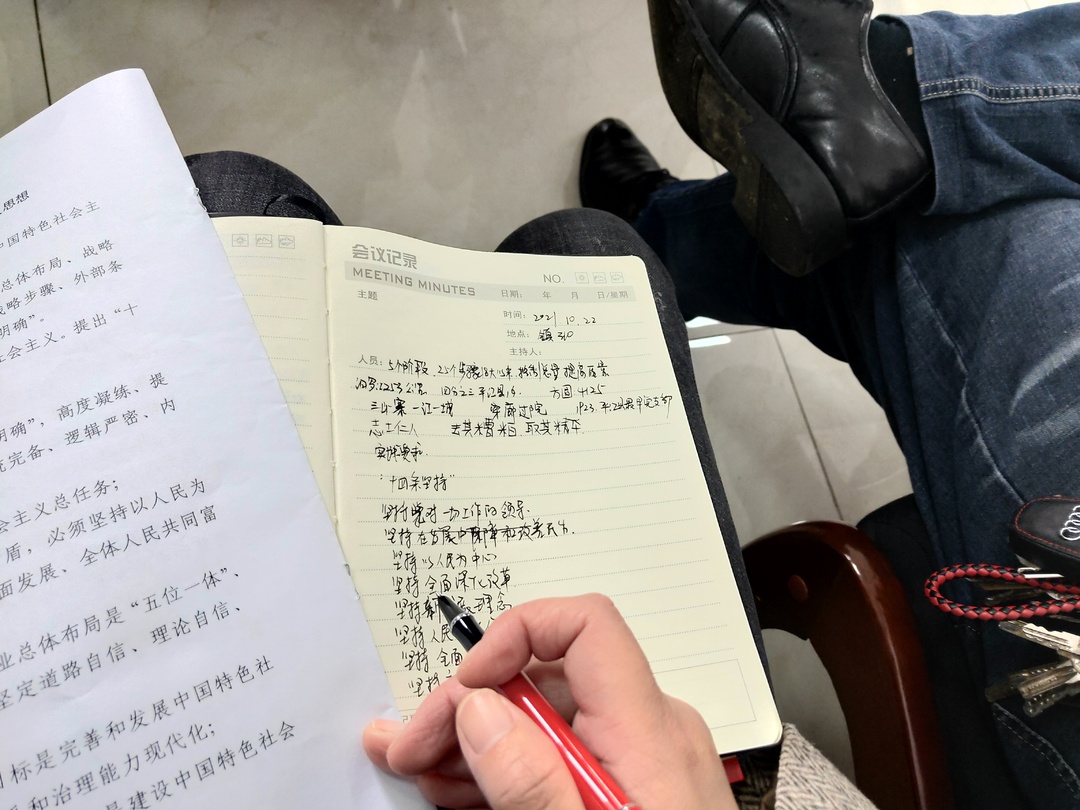 思想
中国特色社会主
总体布局、战略
战略步骤、外部条
明确”。
社会主义。提出“十
明确”，高度凝练、提
统完备、逻辑严密、内
会主义总任务；
盾，必须坚持以人民为
面发展、全体人民共同富
业总体布局是“五位一体”、
坚定道路自信、理论自信、
目标是完善和发展中国特色社
和治理能力现代化；
是建设中国特色社会
会议记录
MEETING MINUTES
NO.
主题
日期： 年 月 日/星期
时间：2021 10.22
地点：镇310
主持人：
人员：5个阶段
方圆4125
三山寨一江一城
志士仁人 去其糟粕 取其精华
“十四条坚持”
坚持 一切工作的领导.
坚持在发展中保障和改善民生.
坚持以人民为中心
坚持全面深化改革
坚持新 理念
坚持人民
坚持全面
坚持